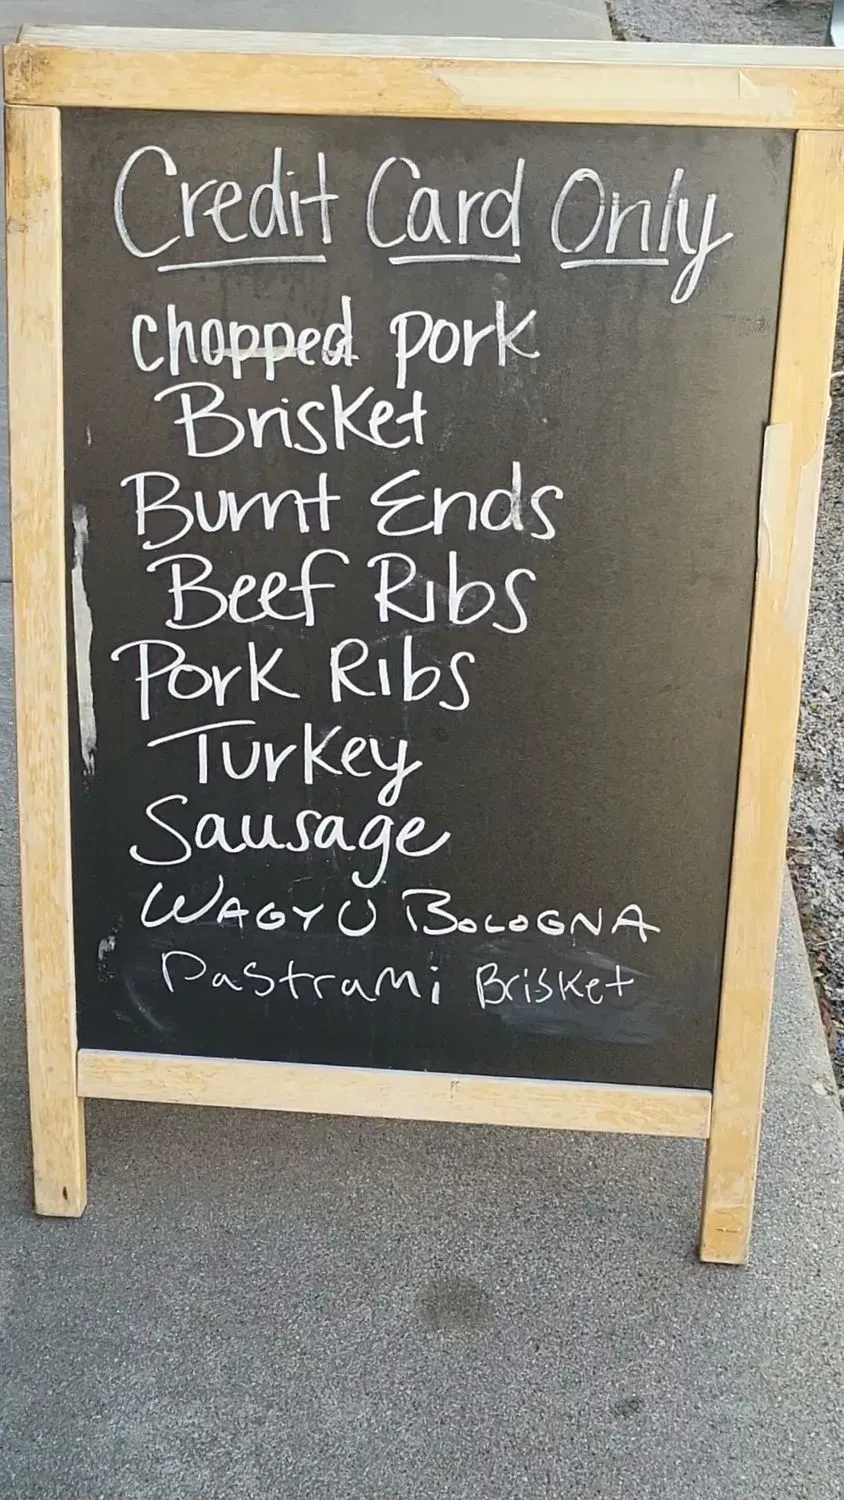 Credit Card Only
chopped pork
Brisket
Burnt Ends
Beef Ribs
Pork Ribs
Turkey
Sausage
WAGYU BOLOGNA
Pastrami Brisket